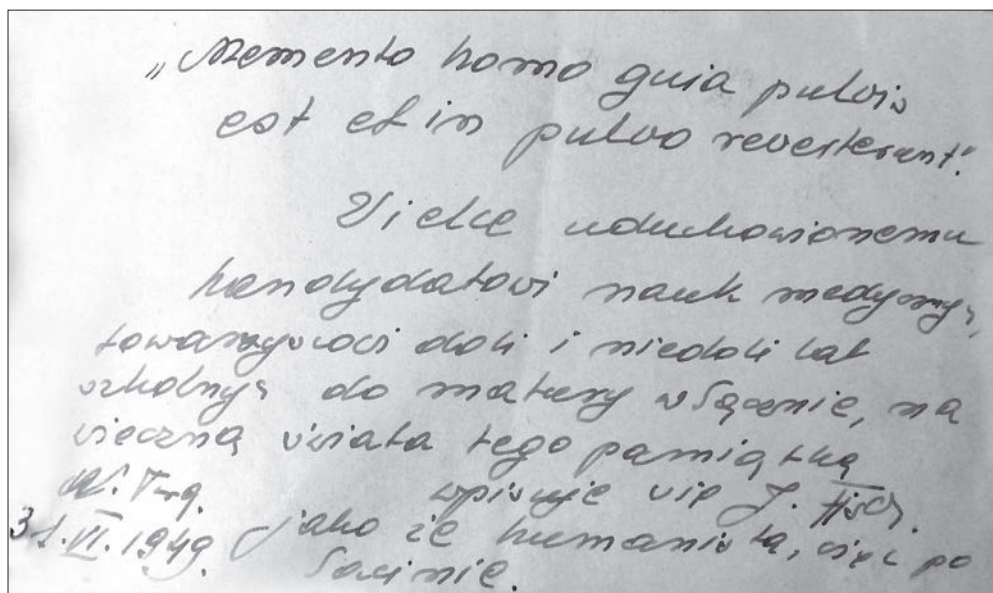 „Memento homo guia pulvis
est et in pulvo revesterant."
Vielce uduchowionemu
kandydatowi nauk medyczny,
towarzyszowi doli i niedoli lat
szkolny, do matury włącznie, na
wieczną świata tego pamiątkę
wpisuje się J.
VI. 1949. jako że humanista, więc po
łacinie.